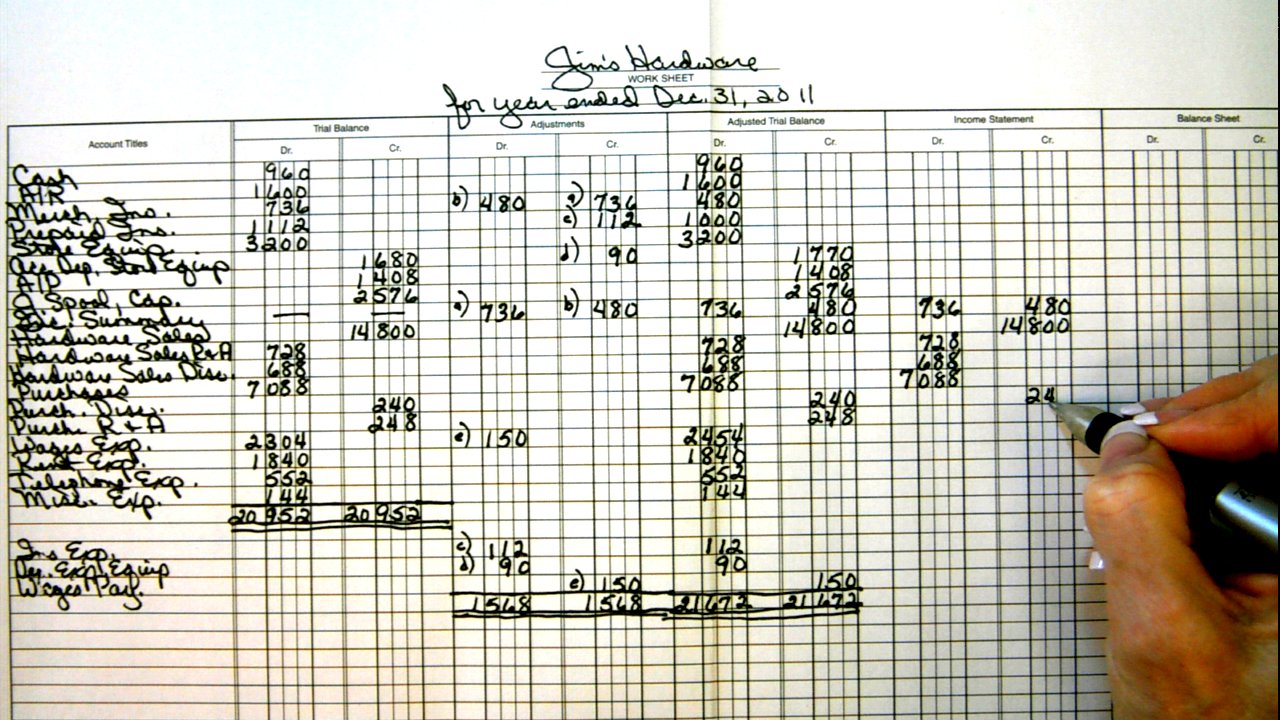 Jim's Hardware
WORK SHEET
for year ended Dec. 31, 2011
Account Titles Trial Balance Adjustments Adjusted Trial Balance Income Statement Balance Sheet
Dr. Cr. Dr. Cr. Dr. Cr. Dr. Cr. Dr. Cr.
Cash 960 960
A/R 1600 1600
Merch. Inv. 736 b) 480 a) 736 480
Prepaid Ins. 1112 c) 112 1000
Store Equip. 3200 3200
Acc. Dep. Store Equip 1680 d) 90 1770
A/P 1408 1408
J. Spool, Cap. 2576 2576
Inc. Summary — — a) 736 b) 480 736 480 736 480
Hardware Sales 14800 14800 14800
Hardware Sales R&A 728 728 728
Hardware Sales Disc. 688 688 688
Purchases 7088 7088 7088
Purch. Disc. 240 240 24
Purch. R & A 248 248
Wages Exp. 2304 e) 150 2454
Rent Exp. 1840 1840
Telephone Exp. 552 552
Misc. Exp. 144 144
20952 20952
Ins Exp. c) 112 112
Dep. Exp. Equip d) 90 90
Wages Pay. e) 150 150
1568 1568 21672 21672